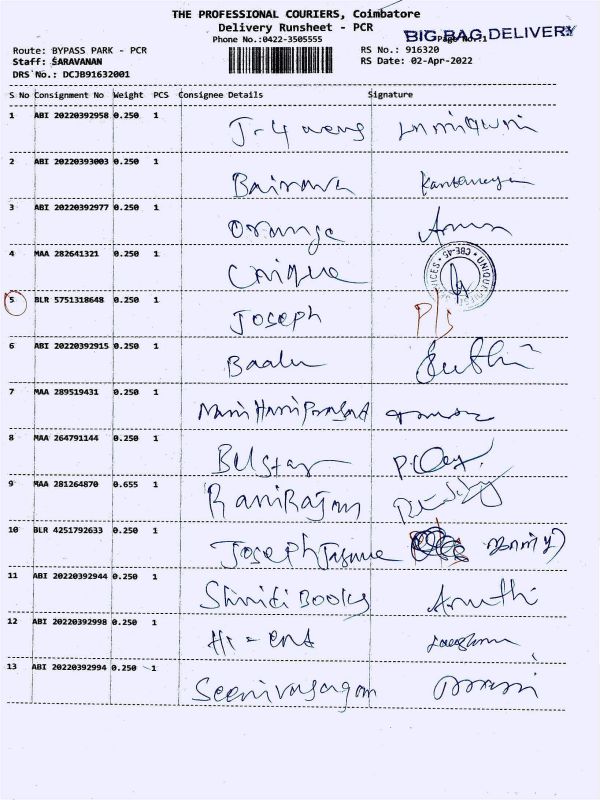 THE PROFESSIONAL COURIERS, Coimbatore
Delivery Runsheet - PCR
BIG BAG DELIVERY
Phone No.:0422-3505555
Page No.:1
Route: BYPASS PARK - PCR
RS No.: 916320
Staff: SARAVANAN
RS Date: 02-Apr-2022
DRS No.: DCJB91632001
S No Consignment No Weight PCS Consignee Details Signature
1 ABI 20220392958 0.250 1
2 ABI 20220393003 0.250 1 Bairava
3 ABI 20220392977 0.250 1 Orange Arun
4 MAA 282641321 0.250 1 Unique
5 BLR 5751318648 0.250 1 Joseph
6 ABI 20220392915 0.250 1 Baalu
7 MAA 289519431 0.250 1 Mani Hari Prasad
8 MAA 264791144 0.250 1 BU Star
9 MAA 281264870 0.655 1 Rani Rajan
10 BLR 4251792633 0.250 1 Joseph
11 ABI 20220392944 0.250 1 Books Aruthi
12 ABI 20220392998 0.250 1 Hi - end
13 ABI 20220392994 0.250 1 Seenivasagan